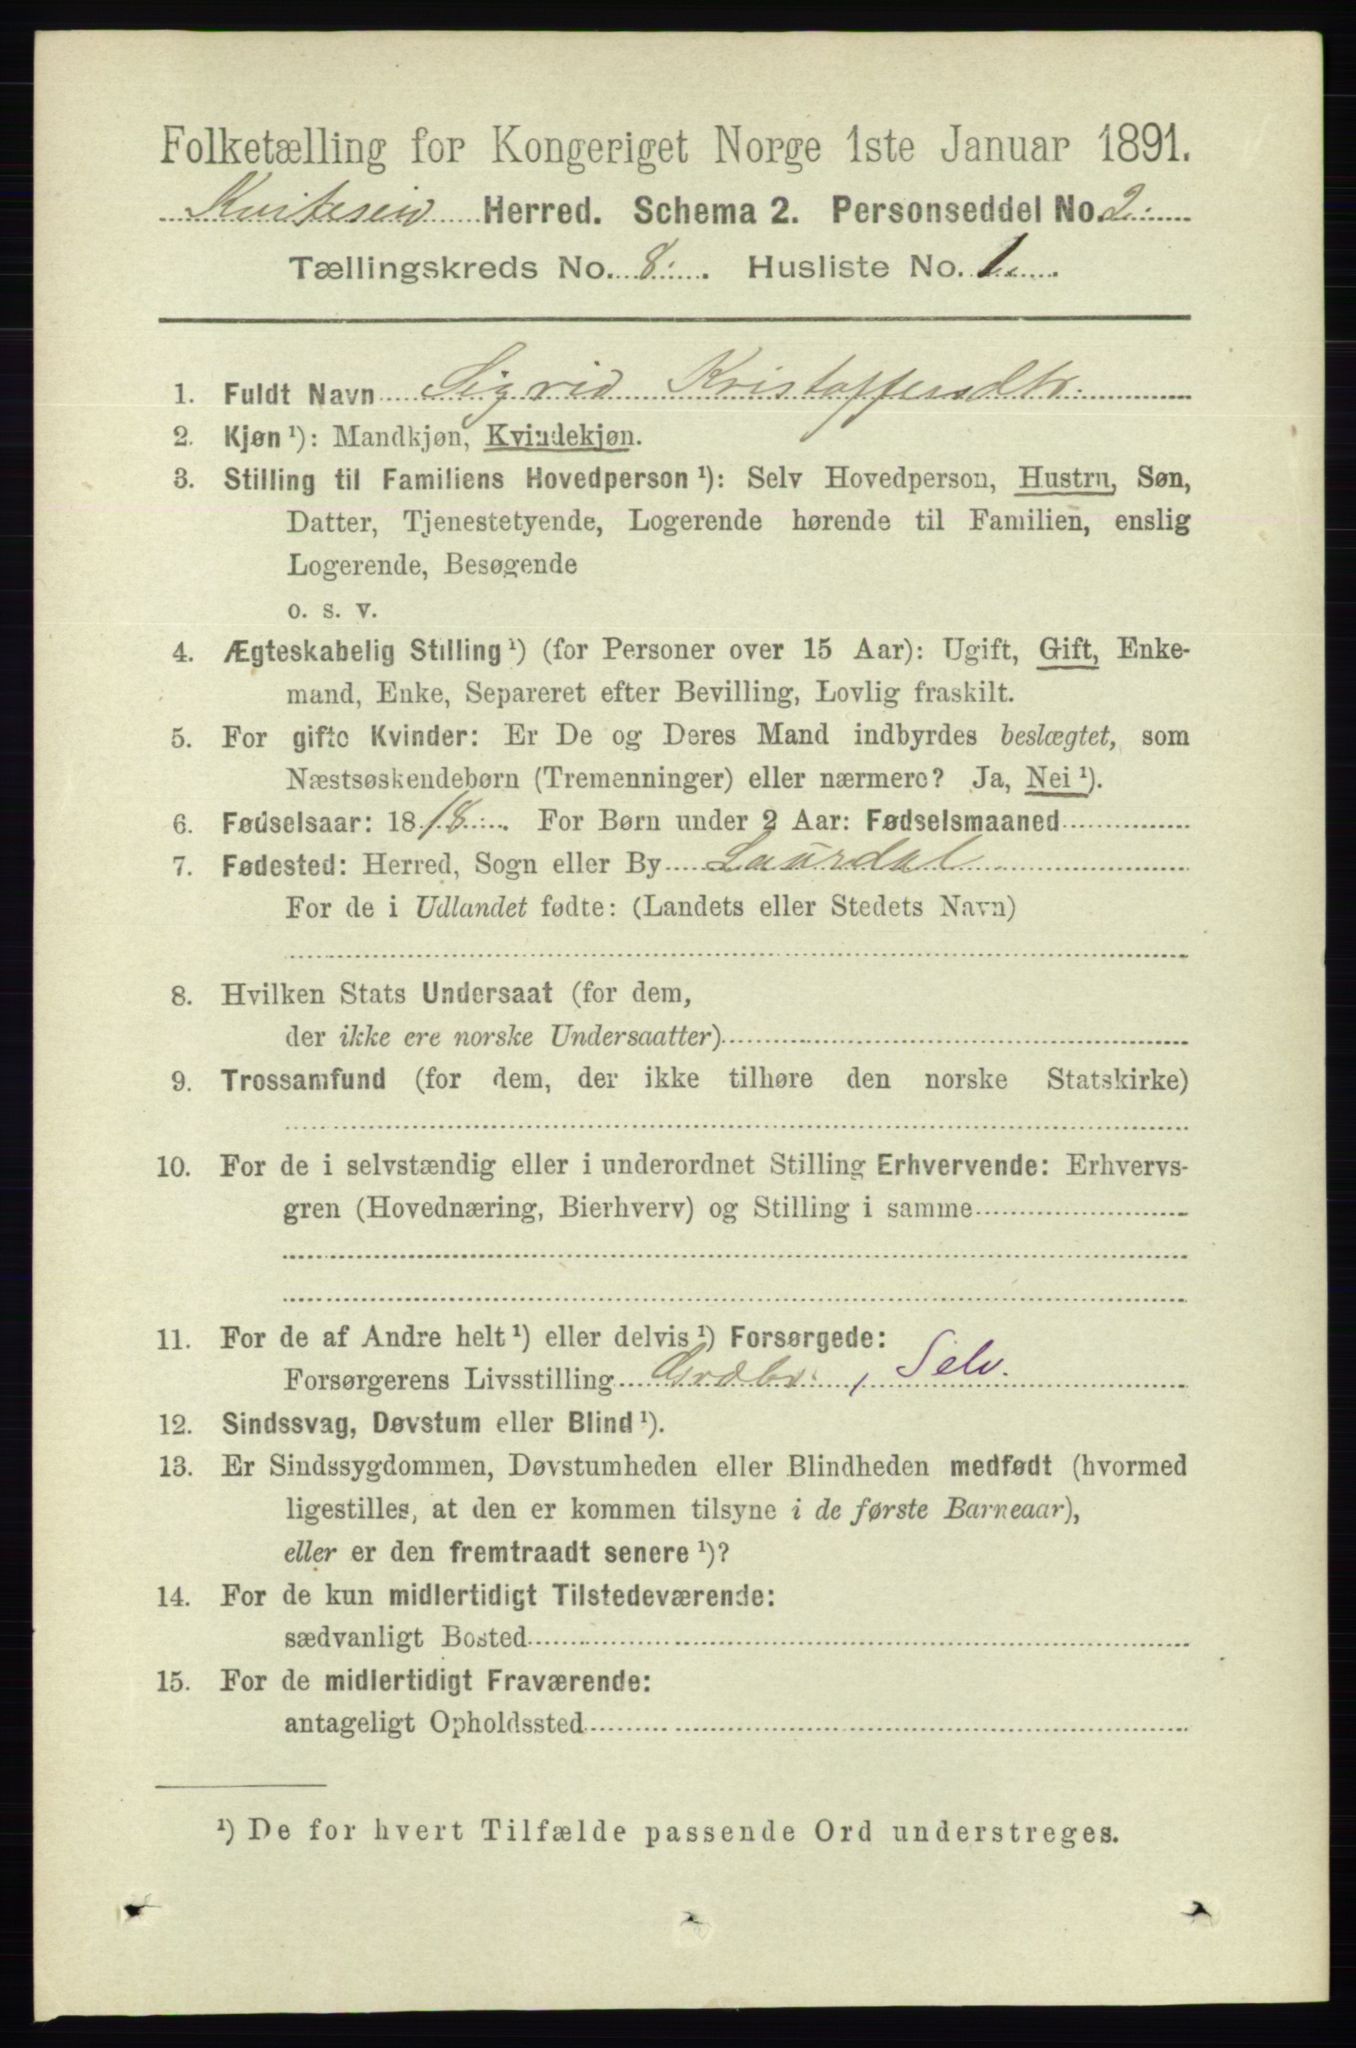 Folketælling for Kongeriget Norge 1ste Januar 1891.
Kviteseid Herred. Schema 2. Personseddel No. 2.
Tællingskreds No. 8. Husliste No. 1.
1. Fuldt Navn Sigrid Kristoffersdtr.
2. Kjøn ¹): Mandkjøn, Kvindekjøn.
3. Stilling til Familiens Hovedperson ¹): Selv Hovedperson, Hustru, Søn,
Datter, Tjenestetyende, Logerende hørende til Familien, enslig
Logerende, Besøgende
o. s. v.
4. Ægteskabelig Stilling ¹) (for Personer over 15 Aar): Ugift, Gift, Enke-
mand, Enke, Separeret efter Bevilling, Lovlig fraskilt.
5. For gifte Kvinder: Er De og Deres Mand indbyrdes beslægtet, som
Næstsøskendebørn (Tremenninger) eller nærmere? Ja, Nei ¹).
6. Fødselsaar: 1818. For Børn under 2 Aar: Fødselsmaaned
7. Fødested: Herred, Sogn eller By Laurdal
For de i Udlandet fødte: (Landets eller Stedets Navn)
8. Hvilken Stats Undersaat (for dem,
der ikke ere norske Undersaatter)
9. Trossamfund (for dem, der ikke tilhøre den norske Statskirke)
10. For de i selvstændig eller i underordnet Stilling Erhvervende: Erhvervs-
gren (Hovednæring, Bierhverv) og Stilling i samme
11. For de af Andre helt ¹) eller delvis ¹) Forsørgede:
Forsørgerens Livsstilling Grdbr. , Selv.
12. Sindssvag, Døvstum eller Blind ¹).
13. Er Sindssygdommen, Døvstumheden eller Blindheden medfødt (hvormed
ligestilles, at den er kommen tilsyne i de første Barneaar),
eller er den fremtraadt senere ¹)?
14. For de kun midlertidigt Tilstedeværende:
sædvanligt Bosted
15. For de midlertidigt Fraværende:
antageligt Opholdssted
¹) De for hvert Tilfælde passende Ord understreges.